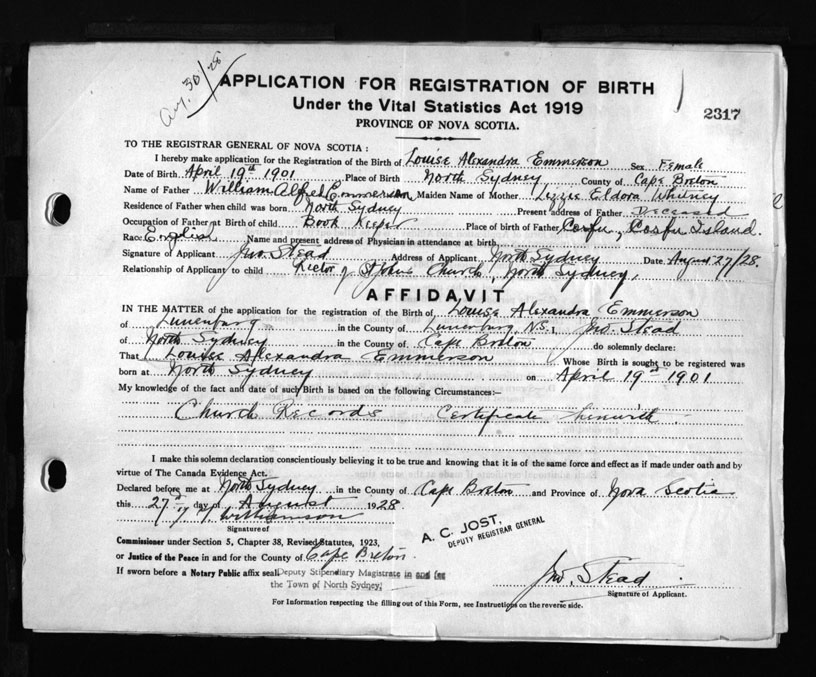 Aug. 30/28
APPLICATION FOR REGISTRATION OF BIRTH
Under the Vital Statistics Act 1919
2317
PROVINCE OF NOVA SCOTIA.
TO THE REGISTRAR GENERAL OF NOVA SCOTIA :
I hereby make application for the Registration of the Birth of Louise Alexandra Emmerson Sex Female
Date of Birth April 19th 1901 Place of Birth North Sydney County of Cape Breton
Name of Father William Alfred Emmerson Maiden Name of Mother Lizzie Eldora Whitney
Residence of Father when child was born North Sydney Present address of Father Deceased
Occupation of Father at Birth of child Book Keeper Place of birth of Father Corfu, Corfu Island.
Race English Name and present address of Physician in attendance at birth
Signature of Applicant Jno. Stead Address of Applicant North Sydney Date August 27/28.
Relationship of Applicant to child Rector of St Johns Church, North Sydney.
AFFIDAVIT
IN THE MATTER of the application for the registration of the Birth of Louise Alexandra Emmerson
of Lunenburg in the County of Lunenburg N.S. I, Jno Stead
of North Sydney in the County of Cape Breton do solemnly declare:
That Louise Alexandra Emmerson Whose Birth is sought to be registered was
born at North Sydney on April 19th 1901
My knowledge of the fact and date of such Birth is based on the following Circumstances:—
Church Records Certificate herewith
I make this solemn declaration conscientiously believing it to be true and knowing that it is of the same force and effect as if made under oath and by
virtue of The Canada Evidence Act.
Declared before me at North Sydney in the County of Cape Breton and Province of Nova Scotia
this 27th day of August 1928
Williamson
Signature of
A. C. JOST,
DEPUTY REGISTRAR GENERAL
Commissioner under Section 5, Chapter 38, Revised Statutes, 1923,
or Justice of the Peace in and for the County of Cape Breton.
If sworn before a Notary Public affix seal Deputy Stipendiary Magistrate in and for
the Town of North Sydney
Jno. Stead
Signature of Applicant.
For Information respecting the filling out of this Form, see Instructions on the reverse side.